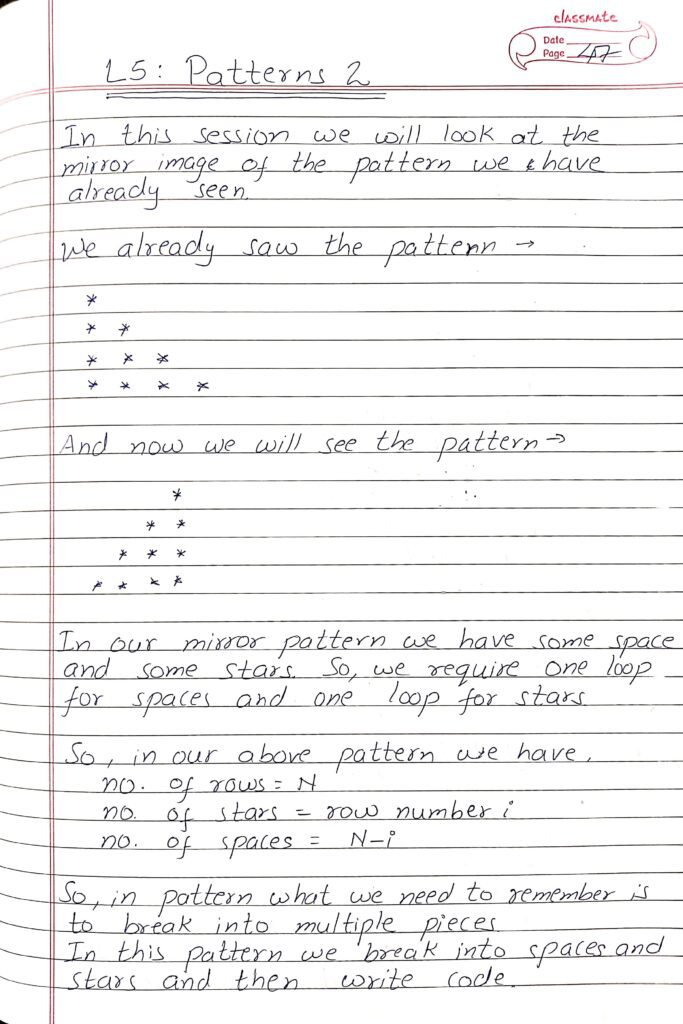 classmate
Date
Page 47
L5: Patterns 2
In this session we will look at the
mirror image of the pattern we have
already seen.
We already saw the pattern →
*
* *
* * *
* * * *
And now we will see the pattern →
*
* *
* * *
* * * *
In our mirror pattern we have some space
and some stars. So, we require one loop
for spaces and one loop for stars
So, in our above pattern we have,
no. of rows = N
no. of stars = row number i
no. of spaces = N-i
So, in pattern what we need to remember is
to break into multiple pieces.
In this pattern we break into spaces and
stars and then write code.